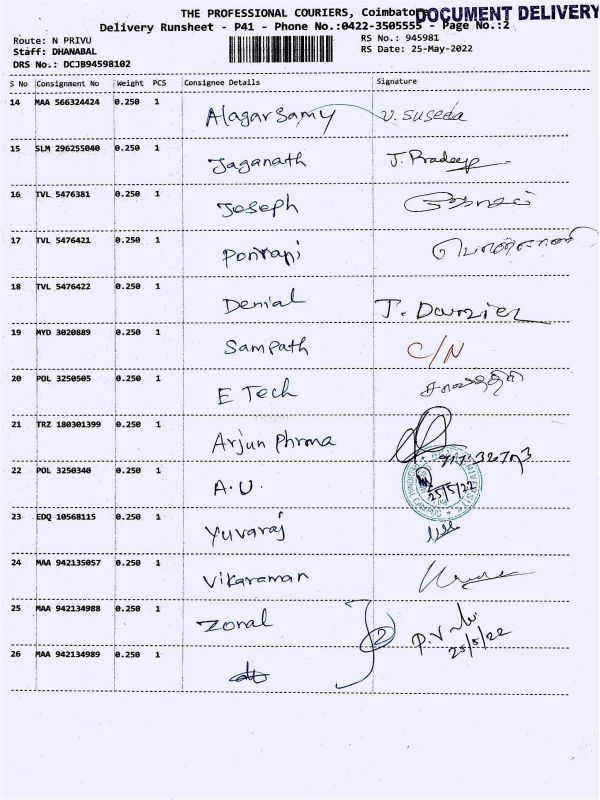 THE PROFESSIONAL COURIERS, Coimbatore
DOCUMENT DELIVERY
Delivery Runsheet - P41 - Phone No.:0422-3505555 - Page No.:2
Route: N PRIVU
RS No.: 945981
Staff: DHANABAL
RS Date: 25-May-2022
DRS No.: DCJB94598102
S No Consignment No Weight PCS Consignee Details Signature
14 MAA 566324424 0.250 1 Alagarsamy U. Suseda
15 SLM 296255040 0.250 1 Jaganath J. Pradeep
16 TVL 5476381 0.250 1 Joseph
17 TVL 5476421 0.250 1 Ponrani
18 TVL 5476422 0.250 1 Denial
19 MYD 3020889 0.250 1 Sampath C/N
20 POL 3250505 0.250 1 E Tech
21 TRZ 180301399 0.250 1 Arjun Phrma
22 POL 3250340 0.250 1 A.U. 25/5/22
23 EDQ 10568115 0.250 1 Yuvaraj
24 MAA 942135057 0.250 1 Vikaraman
25 MAA 942134988 0.250 1 Zonal
25/5/22
26 MAA 942134989 0.250 1